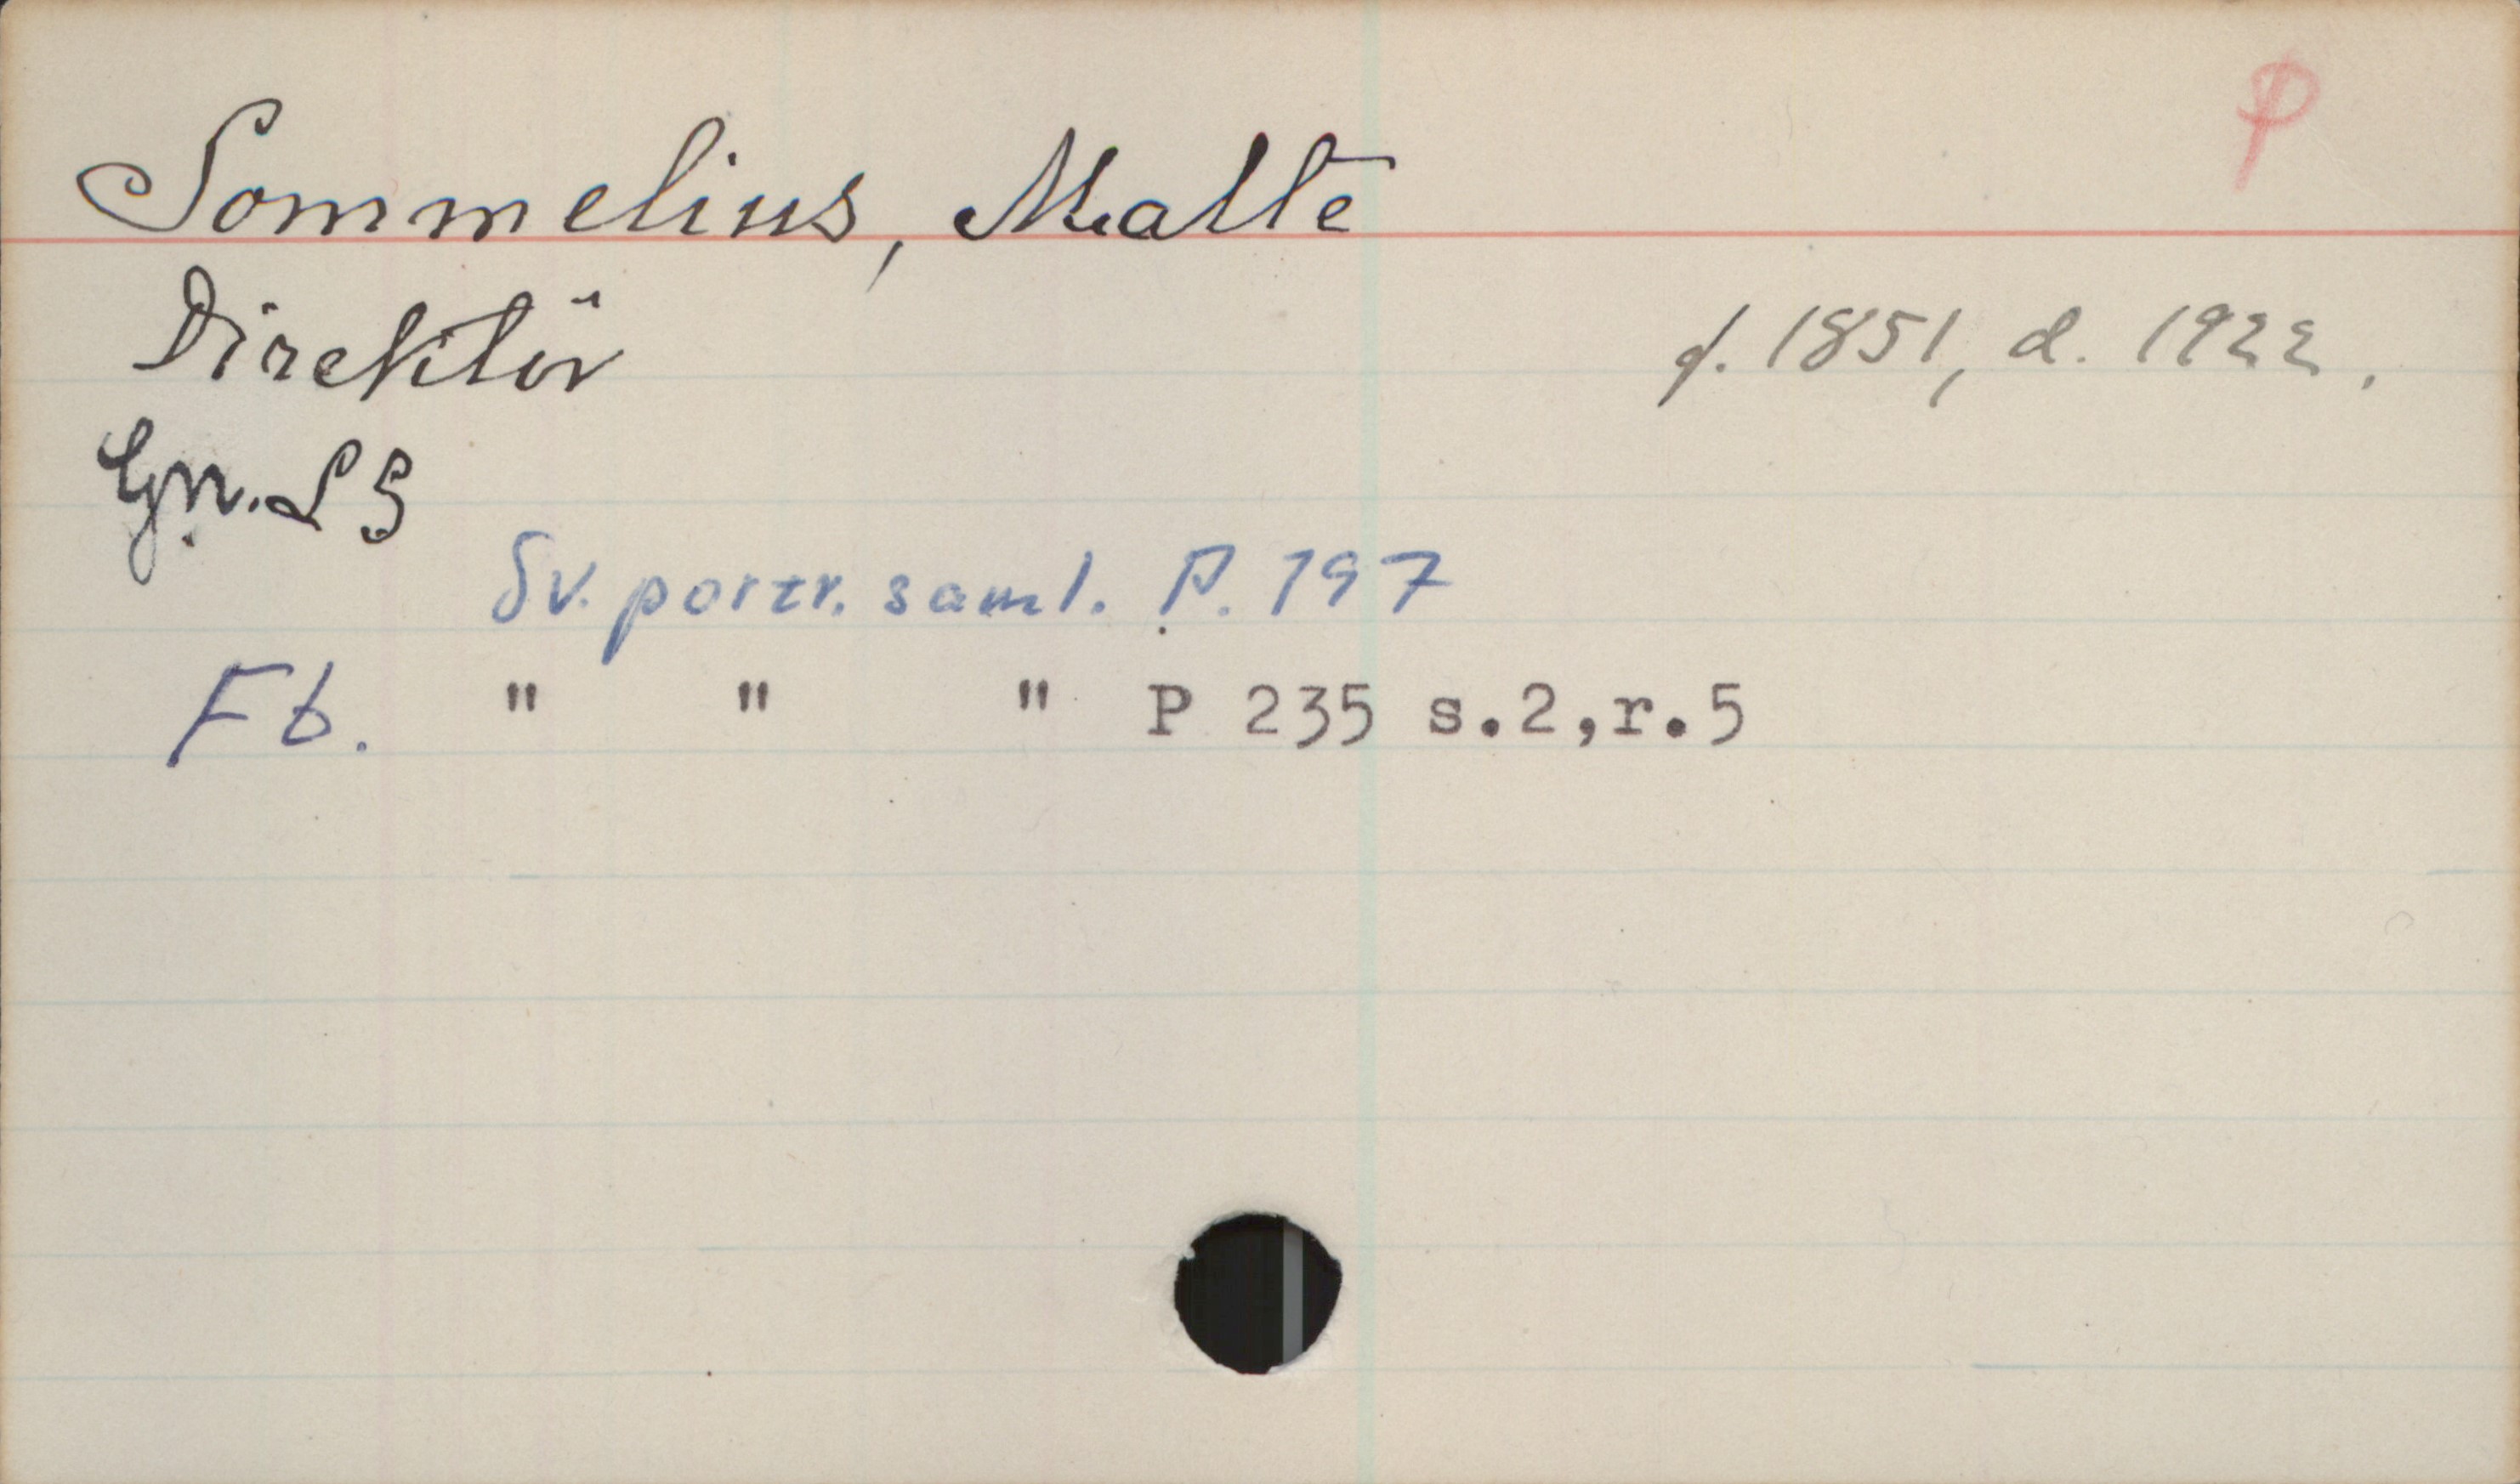 P
Sommelius, Malte
Direktör
f. 1851, d. 1922.
Gn. L 5
Sv. portr. saml. P. 197
Fb. " " " P 235 s.2,r.5